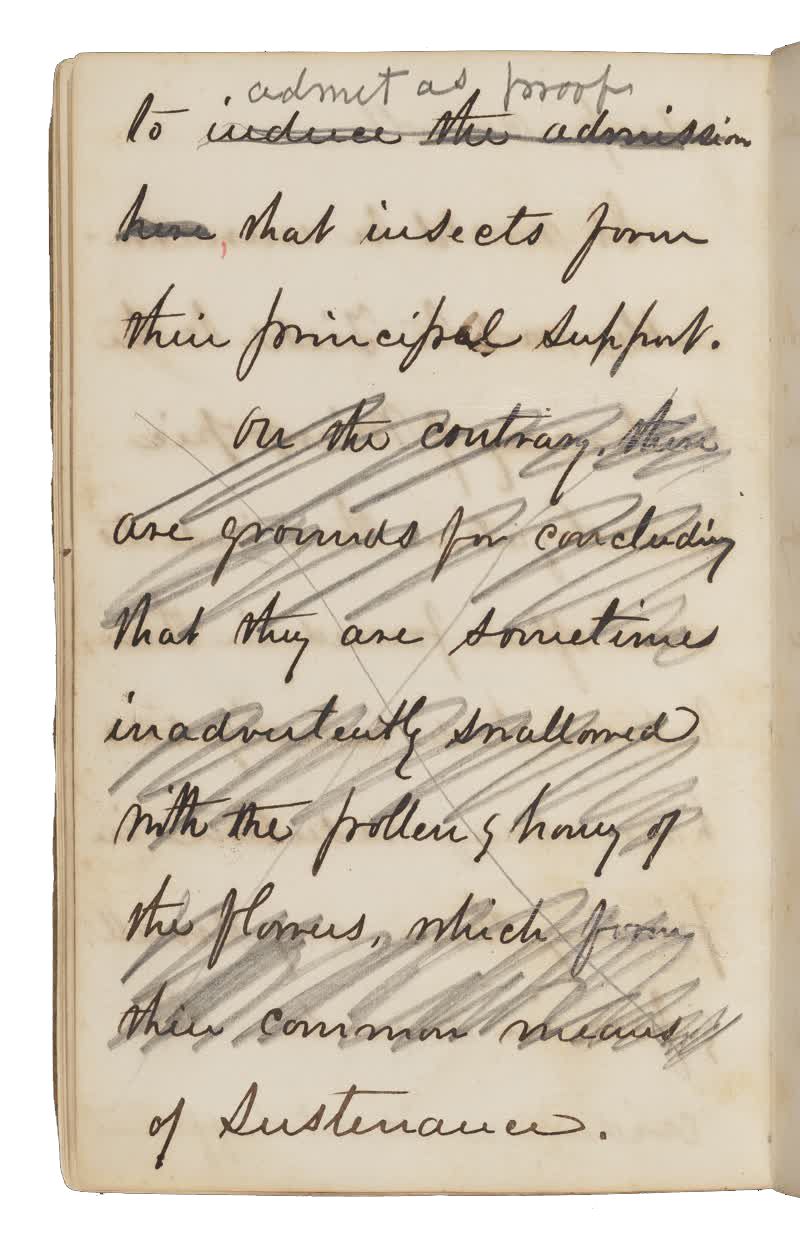 admit as proof
to induce the admission
here, that insects form
their principal support.
On the contrary, there
are grounds for concluding
that they are sometimes
inadvertently swallowed
with the pollen & honey of
the flowers, which form
their common means
of sustenance.